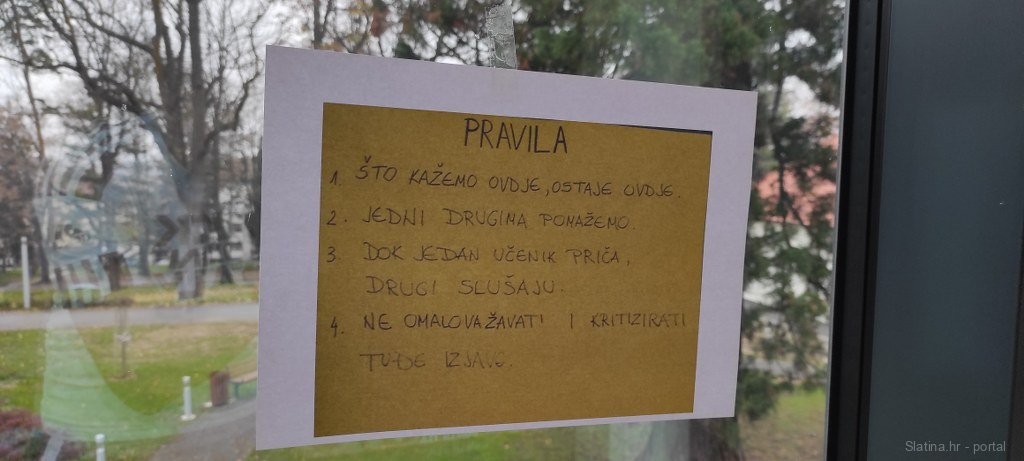 PRAVILA
1. ŠTO KAŽEMO OVDJE, OSTAJE OVDJE.
2. JEDNI DRUGIMA POMAŽEMO.
3. DOK JEDAN UČENIK PRIČA,
DRUGI SLUŠAJU.
4. NE OMALOVAŽAVATI I KRITIZIRATI
TUĐE IZJAVE.
Slatina.hr - portal